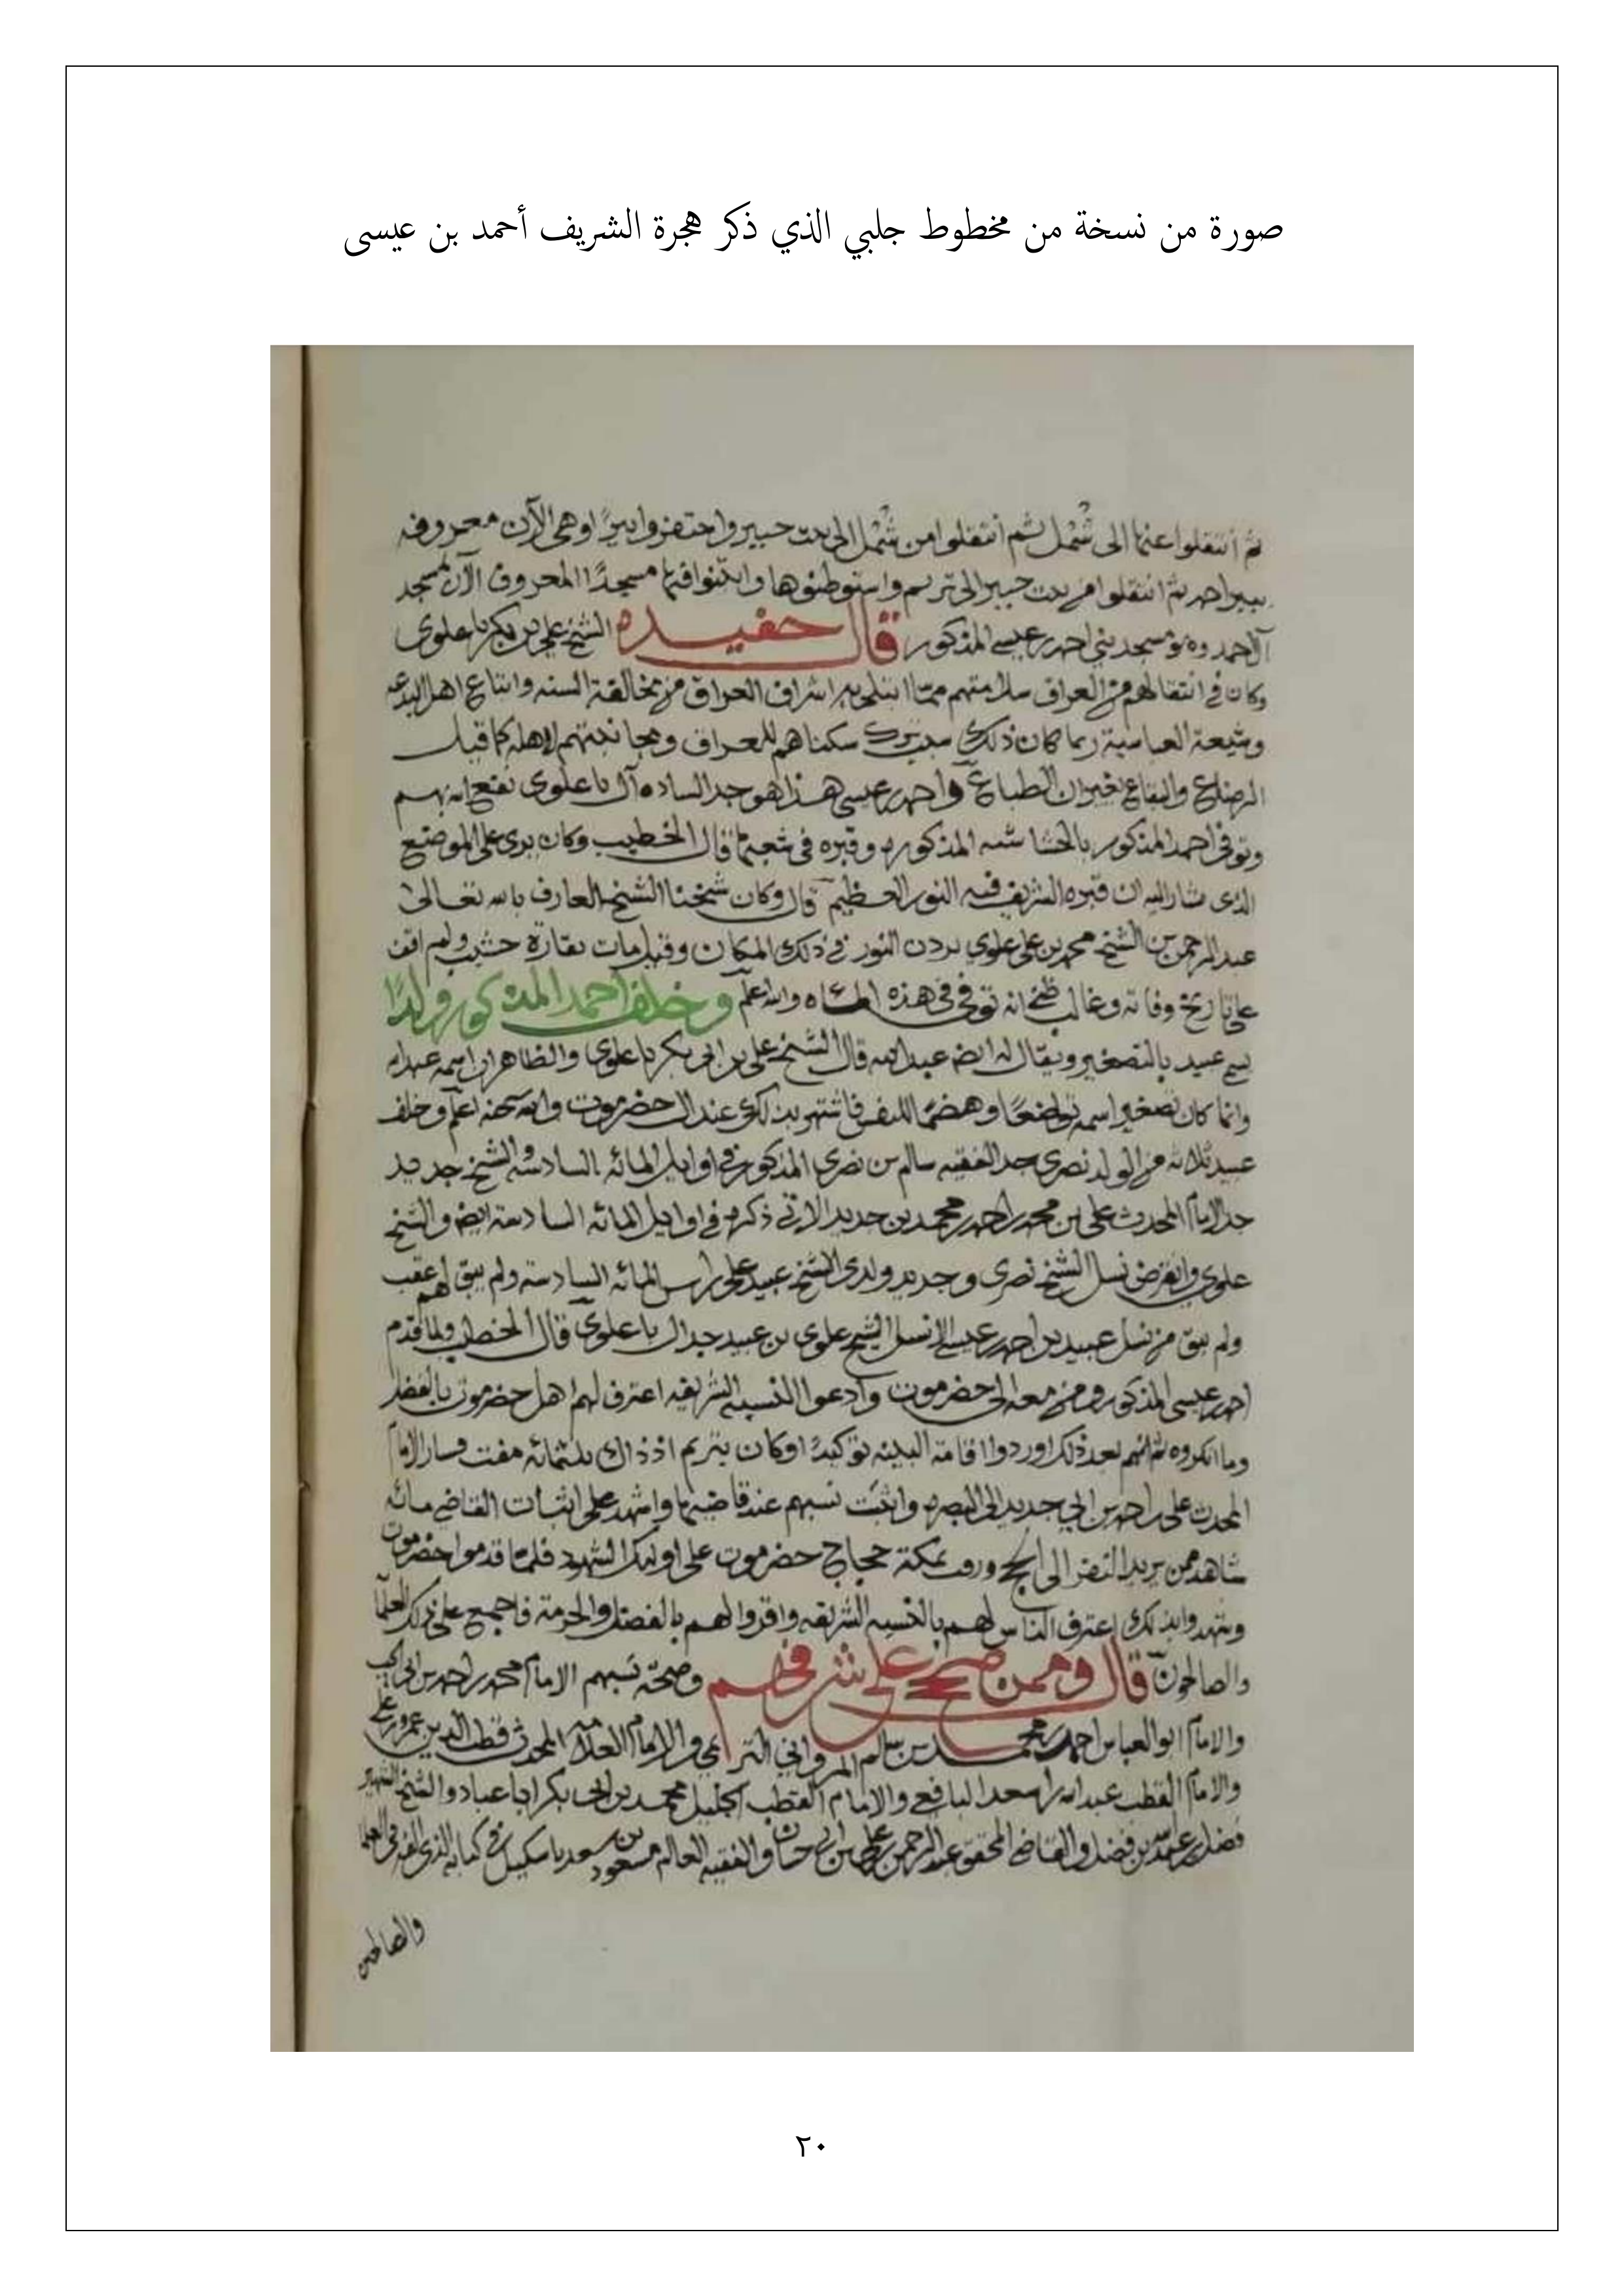 صورة من نسخة من مخطوط جلبي الذي ذكر هجرة الشريف أحمد بن عيسى
ثم انتقلوا عنها الى شمل ثم انتقلوا من شمل الى بيت جبير واحتفروا بيرًا وهي الآن معروفه
ببير احمد ثم انتقلوا من بيت جبير الى تريم واستوطنوها وابتنوا فيها مسجدًا المعروف الآن بمسجد
آل احمد وهو مسجد بني احمد بن عيسى المذكور قال حفيده الشيخ علي بن بكر باعلوي
وكان في انتقالهم من العراق سلامتهم مما ابتلي به اشراف العراق من مخالفة السنه واتباع اهل البدعه
وشيعة العباسية ربما كان ذلك سبب تركـ سكناهم للعراق ومجانبتهم لاهله كما قيل
الرضاع والبقاع يغيران الطباع واحمد بن عيسى هذا هو جد الساده آل باعلوي نفع الله بهم
وتوفي احمد المذكور بالحشاشه المذكوره وقبره في شعبها قال الخطيب وكان يرى على الموضع
الذي يشار اليه ان قبره الشريف فيه النور العظيم قال وكان شيخنا الشيخ العارف بالله تعالى
عبد الرحمن بن الشيخ محمد بن علي علوي يردن النور في ذلك المكان وقيل مات بقارة حشيب ولم اقف
على تاريخ وفاته وغالب ظني انه توفي في هذه الماه والله اعلم وخلف احمد المذكور ولدًا
يسمى عبيد بالتصغير ويقال له ايضا عبد الله قال الشيخ علي بن ابي بكر باعلوي والظاهر ان اسمه عبد الله
وانما كان تصغير اسمه تواضعًا وهضمًا للنفس فاشتهر بذلك عند ال حضرموت والله سبحنه اعلم وخلف
عبيد ثلاثه من الولد بصري جد الفقيه سالم بن بصري المذكور في اوايل المائه السادسه والشيخ جديد
جد الامام المحدث علي بن محمد بن احمد بن محمد بن جديد الآتي ذكره في اوايل المائه السادسه ايضا والشيخ
علوي وانقرض نسل الشيخ بصري وجديد ولدي الشيخ عبيد على راس المائه السادسه ولم يبق لهم عقب
ولم يبق من نسل عبيد بن احمد بن عيسى الا نسل الشيخ علوي بن عبيد جد ال باعلوي قال الخطيب ولما قدم
احمد بن عيسى المذكور ومن معه الى حضرموت وادعوا النسبه الشريفه اعترف لهم اهل حضرموت بالفضل
وما انكروه ثم انهم بعد ذلك اوردوا اقامة البينه توكيدًا وكان بتريم اذ ذاك ثلثمائه مفت فسار الامام
المحدث علي بن احمد بن ابي جديد الى البصره واثبت نسبهم عند قاضيها واشهد على اثبات القاضي مائه
شاهد ممن يريد السفر الى الحج ورقب بمكة حجاج حضرموت على اوليك الشهود فلما قدموا حضرموت
وشهدوا بذلك اعترف الناس لهم بالنسبه الشريفه واقروا لهم بالفضل والحرمة فاجمع على ذلك العلما
والصالحون قال وممن صحح على شرفهم وصحة نسبهم الامام محمد بن احمد بن ابي الحب
والامام ابو العباس احمد بن محمد بن سالم المرواني التريمي والامام العلامه المحدث قطب الدين عمر بن علي
والامام القطب عبد الله بن اسعد اليافعي والامام القطب الجليل محمد بن ابي بكر باعباد والشيخ الشهير
فضل بن عبد الله بن فضل والقاضي المحقق عبد الرحمن بن علي بن حسان والفقيه العالم مسعود بن سعد باشكيل في كتابه الذي الفه في العلما
والصالحين
٢٠